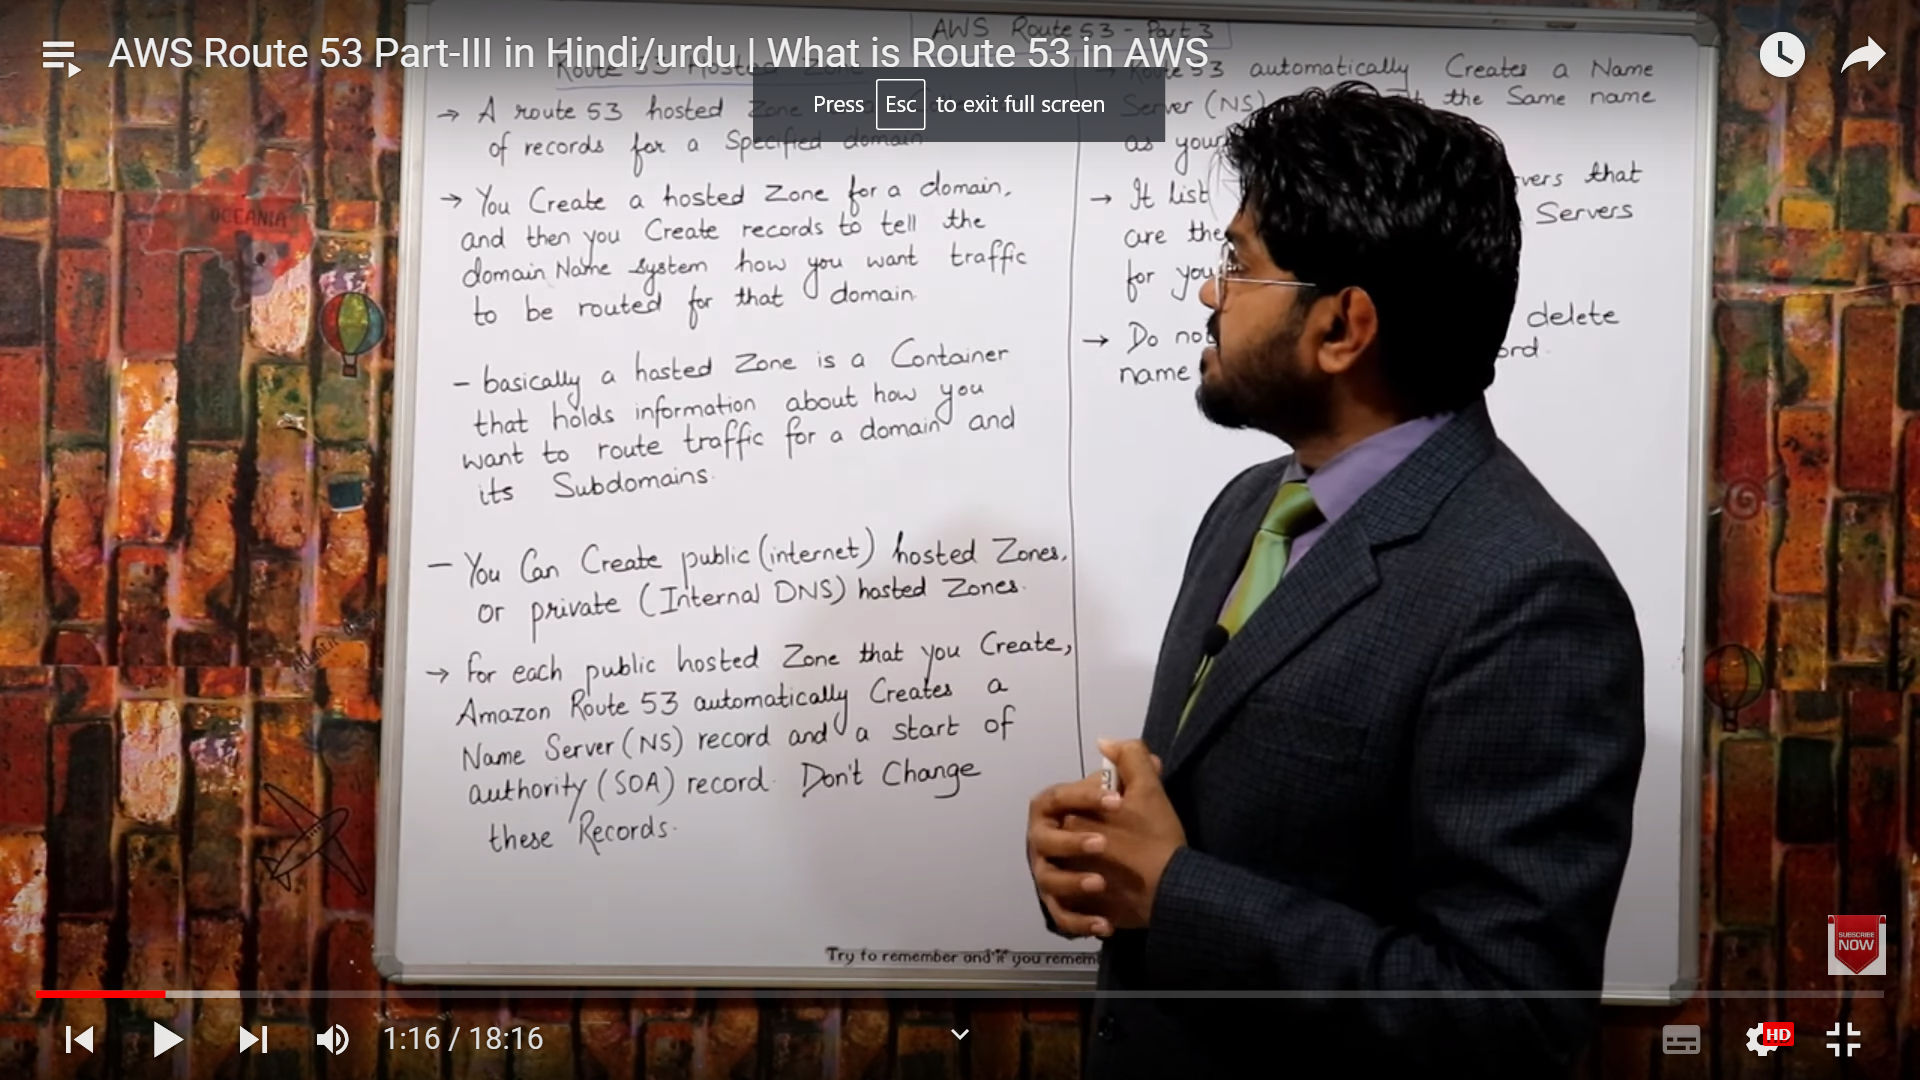 AWS Route 53 Part-III in Hindi/urdu | What is Route 53 in AWS
Press Esc to exit full screen
AWS Route 53 - Part 3
Route 53 Hosted Zone
→ A route 53 hosted Zone
of records for a Specified domain
→ You Create a hosted Zone for a domain,
and then you Create records to tell the
domain Name system how you want traffic
to be routed for that domain.
- basically a hosted Zone is a Container
that holds information about how you
want to route traffic for a domain and
its Subdomains.
- You Can Create public (internet) hosted Zones,
or private (Internal DNS) hosted Zones.
→ For each public hosted Zone that you Create,
Amazon Route 53 automatically Creates a
Name Server (NS) record and a start of
authority (SOA) record. Don't Change
these Records.
→ Route 53 automatically Creates a Name
Server (NS) the Same name
as your
→ It list that
are the Servers
for you
→ Do not delete
name
Try to remember and if you
OCEANIA
SUBSCRIBE
NOW
1:16 / 18:16
HD